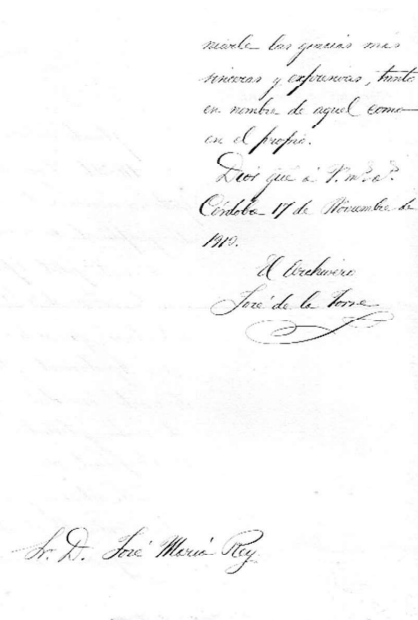 las gracias mas
sinceras y expresivas, tanto
en nombre de aquel como
en el propio.
Dios gue á V. m.s a.s
Córdoba 17 de Noviembre de
1919.
El Archivero
José de la Torre
Sr. D. José María Rey